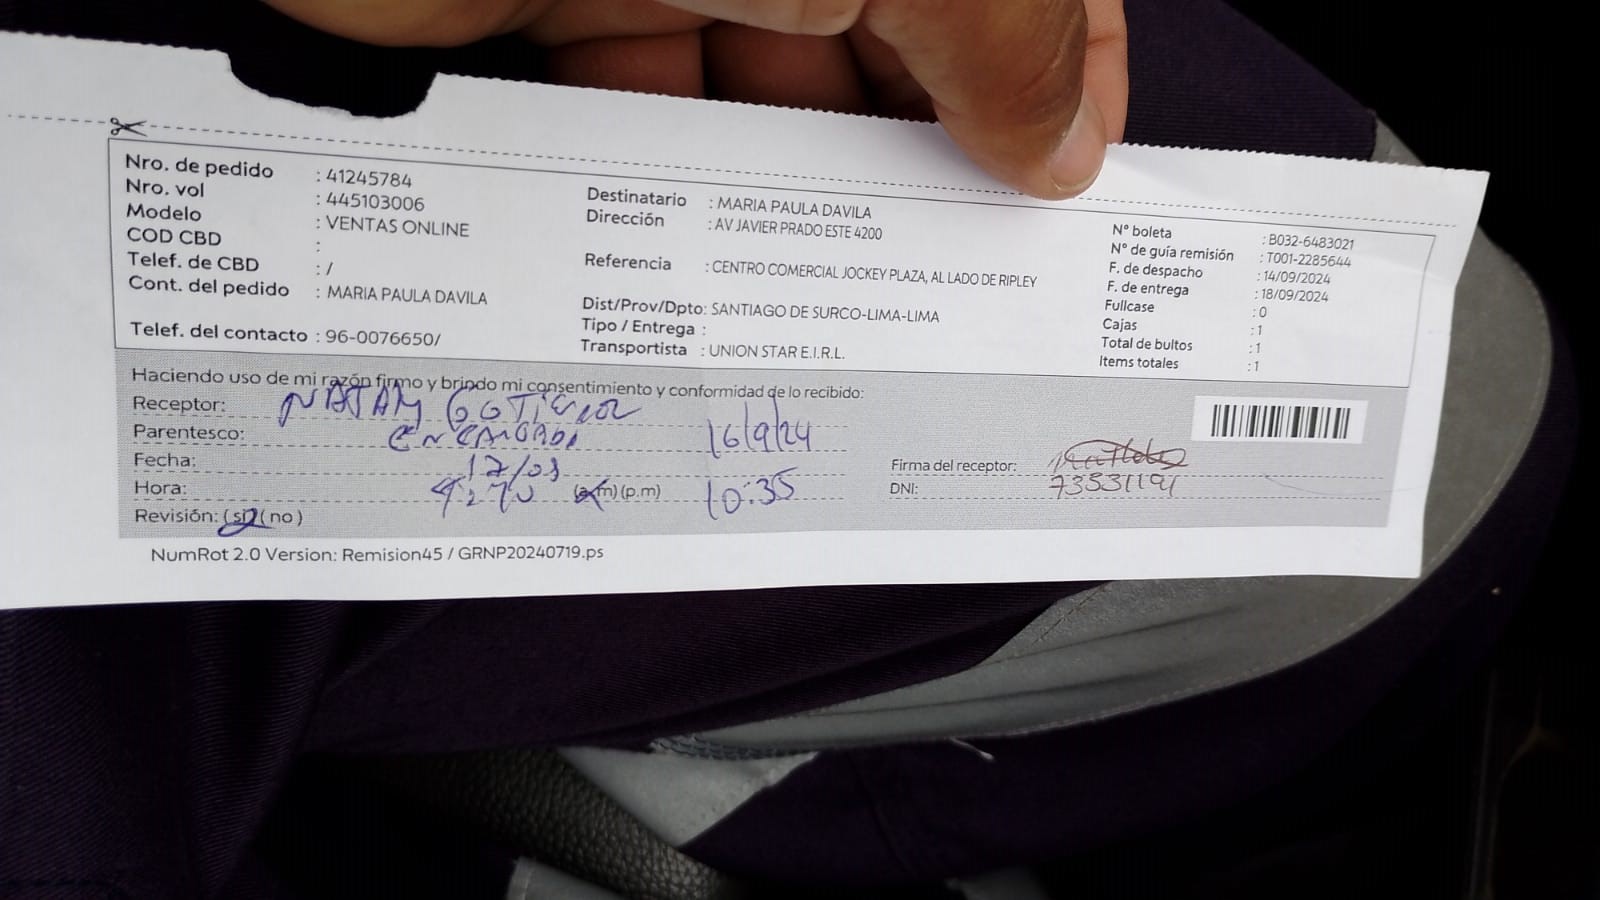 Nro. de pedido : 41245784
Nro. vol : 445103006
Modelo : VENTAS ONLINE
COD CBD :
Telef. de CBD : /
Cont. del pedido : MARIA PAULA DAVILA
Telef. del contacto : 96-0076650/
Destinatario : MARIA PAULA DAVILA
Dirección : AV JAVIER PRADO ESTE 4200
Referencia : CENTRO COMERCIAL JOCKEY PLAZA, AL LADO DE RIPLEY
Dist/Prov/Dpto: SANTIAGO DE SURCO-LIMA-LIMA
Tipo / Entrega :
Transportista : UNION STAR E.I.R.L.
N° boleta : B032-6483021
N° de guía remisión : T001-2285644
F. de despacho : 14/09/2024
F. de entrega : 18/09/2024
Fullcase : 0
Cajas : 1
Total de bultos : 1
Items totales : 1
Haciendo uso de mi razón firmo y brindo mi consentimiento y conformidad de lo recibido:
Receptor:
Parentesco: 16/9/24
Fecha:
Hora: (a.m) (p.m) 10:35
Revisión: (si) (no)
Firma del receptor:
DNI: 73531191
NumRot 2.0 Version: Remision45 / GRNP20240719.ps